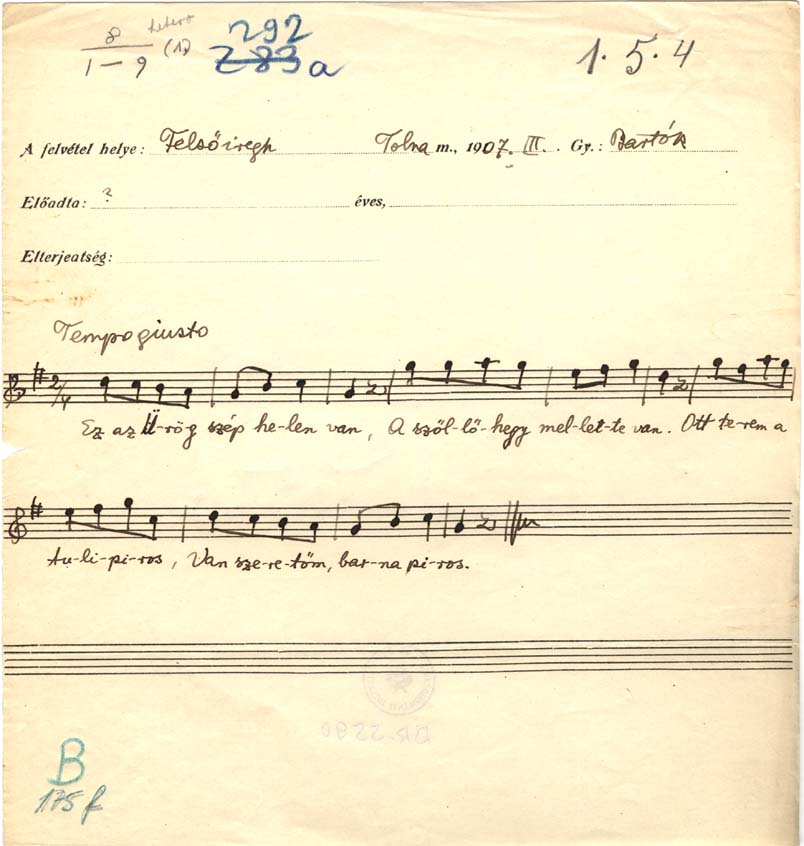 8 hetero 292
1–9 (17) Z 83 a 1. 5. 4
A felvétel helye: Felsőiregh Tolna m., 1907. III. Gy.: Bartók
Előadta: ? éves,
Elterjedtség:
Tempo giusto
2/4
Ez az Ü-rög szép he-len van, A szöl-lő-hegy mel-let-te van. Ott te-rem a
Au-li-pi-ros, Van sze-re-tőm, bar-na pi-ros.
B
175 f